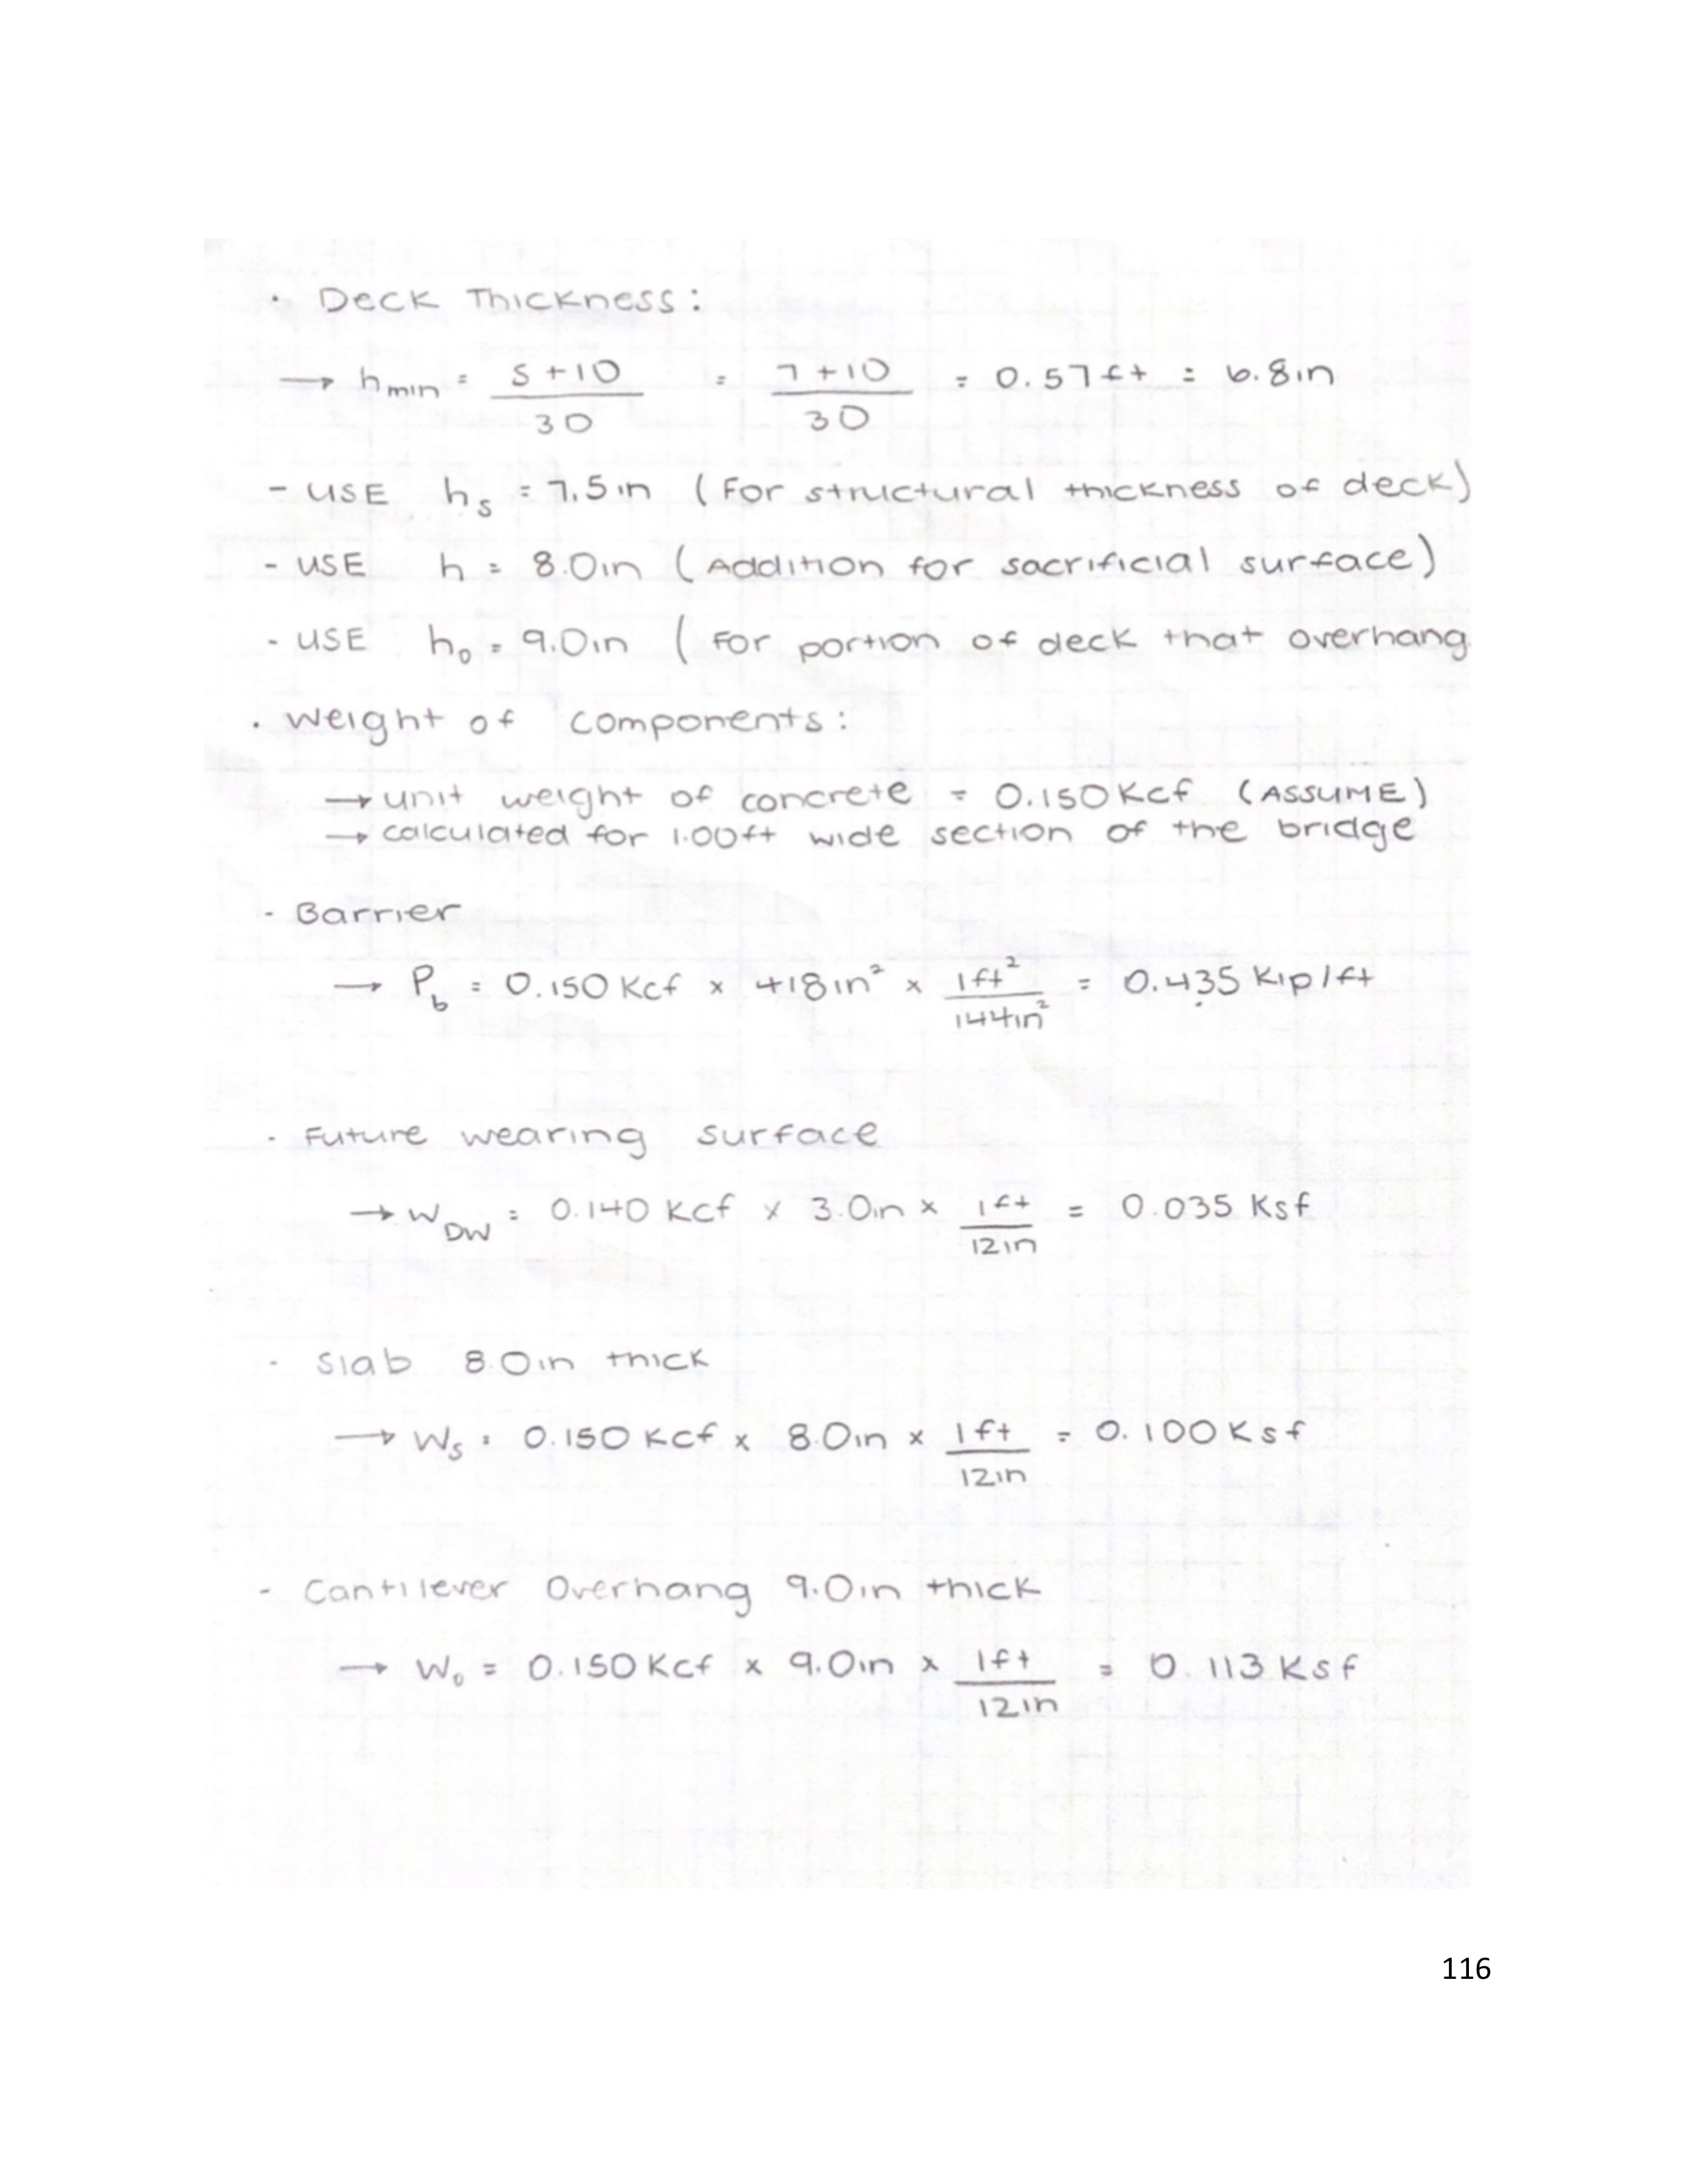 • Deck Thickness:
→ hmin = S+10/30 = 7+10/30 = 0.57ft = 6.8in
- USE hs = 7.5in (For structural thickness of deck)
- USE h = 8.0in (Addition for sacrificial surface)
- USE ho = 9.0in (For portion of deck that overhang
• Weight of components:
→ unit weight of concrete = 0.150 Kcf (ASSUME)
→ calculated for 1.00ft wide section of the bridge
- Barrier
→ Pb = 0.150 Kcf x 418in² x 1ft²/144in² = 0.435 Kip/ft
- Future wearing surface
→ WDW = 0.140 Kcf x 3.0in x 1ft/12in = 0.035 Ksf
- Slab 8.0in thick
→ Ws = 0.150 Kcf x 8.0in x 1ft/12in = 0.100 Ksf
- Cantilever Overhang 9.0in thick
→ Wo = 0.150 Kcf x 9.0in x 1ft/12in = 0.113 Ksf
116